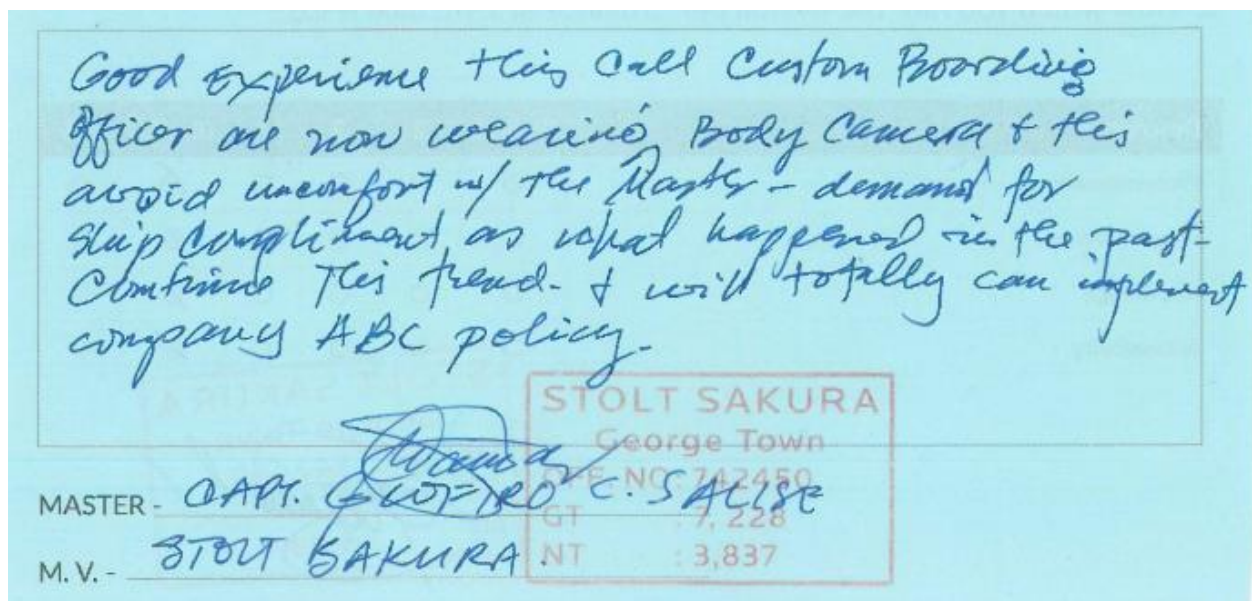 Good Experience this Call Custom Boarding
Officer are now wearing Body Camera & this
avoid uncomfort w/ the Master - demand for
Ship Compliment as what happened in the past-
Continue This trend- & will totally can implement
company ABC policy-
STOLT SAKURA
George Town
OFF. NO: 742450
GT : 7, 228
NT : 3,837
MASTER - CAPT. C. SALISE
M. V. - STOLT SAKURA.